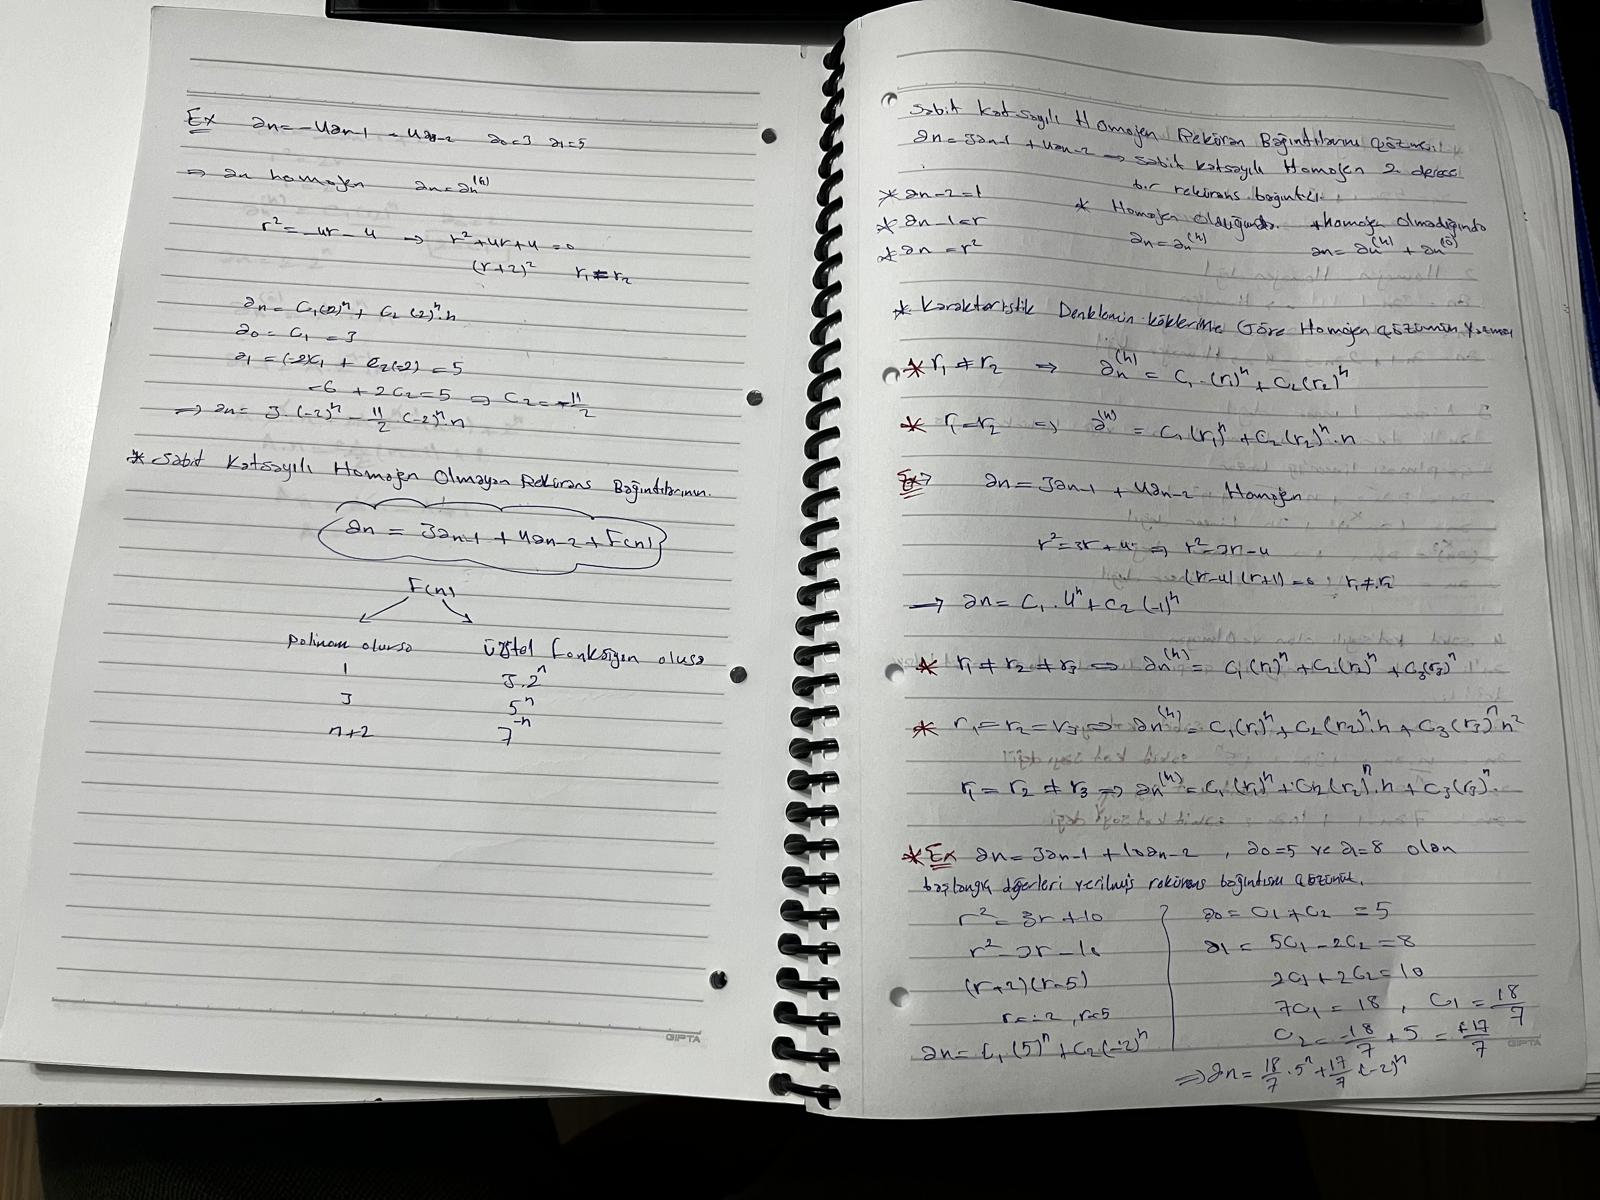 Ex an = -4an-1 - 4an-2 a0=3 a1=5
⇒ an homojen an = an^(h)
r² = -4r - 4 ⇒ r² + 4r + 4 = 0
(r+2)² r1 = r2
an = C1(-2)^n + C2(-2)^n.n
a0 = C1 = 3
a1 = (-2)C1 + C2(-2) = 5
-6 + 2C2 = 5 ⇒ C2 = -11/2
⇒ an = 3.(-2)^n - 11/2 (-2)^n.n
* Sabit Katsayılı Homojen Olmayan Rekürans Bağıntılarının.
an = 3an-1 + 4an-2 + F(n)
F(n)
polinom olursa üstel fonksiyon olursa
1 3.2^n
3 5^n
n+2 7^-n
GIPTA
Sabit Katsayılı Homojen Reküran Bağıntılarını Çözümü
an = 3an-1 + 4an-2 ⇒ Sabit katsayılı Homojen 2. derece
bir rekürans bağıntısı.
* an-2 = 1
* an-1 = r
* an = r²
* Homojen Olduğunda. * homojen Olmadığında
an = an^(h) an = an^(h) + an^(ö)
* Karakteristik Denklemin köklerine Göre Homojen Çözümün Yazımı
* r1 ≠ r2 ⇒ an^(h) = C1.(r1)^n + C2(r2)^n
* r1 = r2 ⇒ a^(h) = C1(r1)^n + C2(r2)^n.n
Ex> an = 3an-1 + 4an-2 Homojen
r² = 3r + 4 ⇒ r² - 3r - 4
(r-4)(r+1) = 0 r1 ≠ r2
→ an = C1.4^n + C2(-1)^n
* r1 ≠ r2 ≠ r3 ⇒ an^(h) = C1(r1)^n + C2(r2)^n + C3(r3)^n
* r1 = r2 = r3 ⇒ an^(h) = C1(r1)^n + C2(r2)^n.n + C3(r3)^n n²
r1 = r2 ≠ r3 ⇒ an^(h) = C1(r1)^n + C2(r2)^n.n + C3(r3)^n.
* Ex an = 3an-1 + 10an-2 , a0=5 ve a1=8 olan
başlangıç değerleri verilmiş rekürans bağıntısını çözünüz.
r² = 3r + 10
r² - 3r - 10
(r+2)(r-5)
r = -2, r=5
an = C1(5)^n + C2(-2)^n
a0 = C1 + C2 = 5
a1 = 5C1 - 2C2 = 8
2C1 + 2C2 = 10
7C1 = 18 , C1 = 18/7
C2 = -18/7 + 5 = +17/7
⇒ an = 18/7 . 5^n + 17/7 (-2)^n
GIPTA